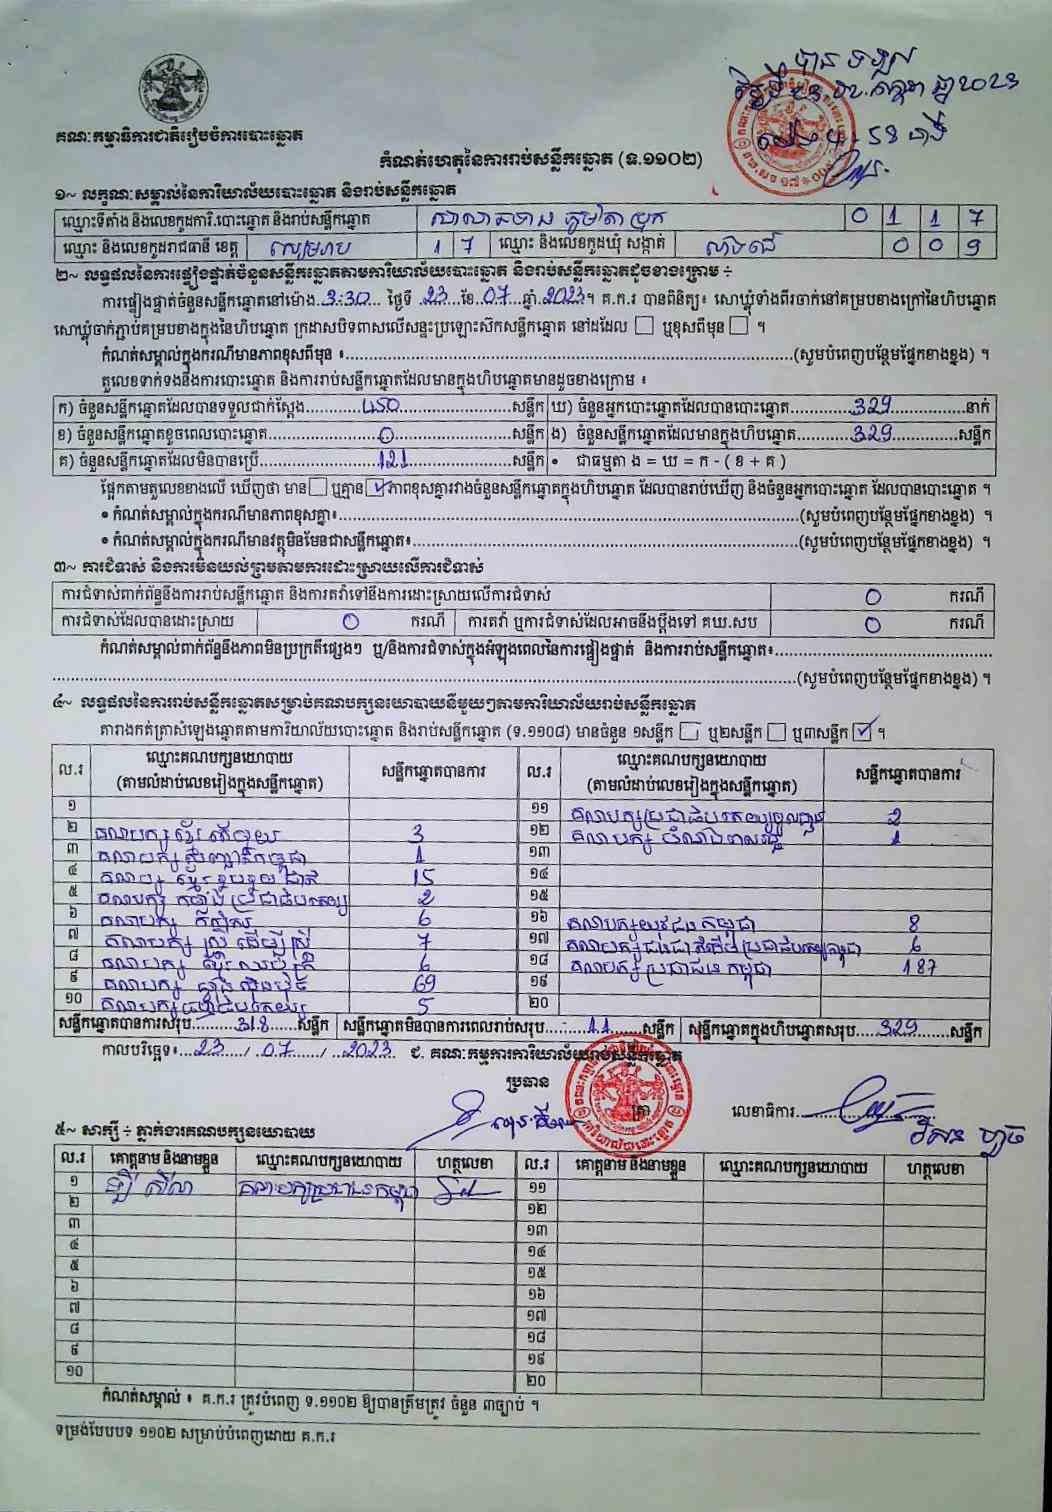 បានទទួល
ថ្ងៃទី 23 ខែ កក្កដា ឆ្នាំ 2023
គណៈកម្មាធិការជាតិរៀបចំការបោះឆ្នោត
កំណត់ហេតុនៃការរាប់សន្លឹកឆ្នោត (ទ.១១០២)
១~ លក្ខណៈសម្គាល់នៃការិយាល័យបោះឆ្នោត និងរាប់សន្លឹកឆ្នោត
ឈ្មោះទីតាំង និងលេខកូដការិ.បោះឆ្នោត និងរាប់សន្លឹកឆ្នោត សាលាឆទាន ភូមិតាប្រុក 0 1 1 7
ឈ្មោះ និងលេខកូដរាជធានី ខេត្ត សៀមរាប 1 7 ឈ្មោះ និងលេខកូដឃុំ សង្កាត់ 0 0 9
២~ លទ្ធផលនៃការផ្ទៀងផ្ទាត់ចំនួនសន្លឹកឆ្នោតតាមការិយាល័យបោះឆ្នោត និងរាប់សន្លឹកឆ្នោតដូចខាងក្រោម ÷
ការផ្ទៀងផ្ទាត់ចំនួនសន្លឹកឆ្នោតនៅម៉ោង 3:30 ថ្ងៃទី 23 ខែ 07 ឆ្នាំ 2023 ។ គ.ក.រ បានពិនិត្យ៖ សោឃ្លុំទាំងពីរចាក់នៅគម្របខាងក្រៅនៃហិបឆ្នោត
សោឃ្លុំចាក់ភ្ជាប់គម្របខាងក្នុងនៃហិបឆ្នោត ក្រដាសបិទពាសលើសន្ទះប្រឡោះស៊កសន្លឹកឆ្នោត នៅដដែល ☐ ឬខុសពីមុន ☐ ។
កំណត់សម្គាល់ក្នុងករណីមានភាពខុសពីមុន ៖ (សូមបំពេញបន្ថែមផ្នែកខាងខ្នង) ។
តួលេខទាក់ទងនឹងការបោះឆ្នោត និងការរាប់សន្លឹកឆ្នោតដែលមានក្នុងហិបឆ្នោតមានដូចខាងក្រោម ៖
ក) ចំនួនសន្លឹកឆ្នោតដែលបានទទួលជាក់ស្តែង 450 សន្លឹក ឃ) ចំនួនអ្នកបោះឆ្នោតដែលបានបោះឆ្នោត 329 នាក់
ខ) ចំនួនសន្លឹកឆ្នោតខូចពេលបោះឆ្នោត 0 សន្លឹក ង) ចំនួនសន្លឹកឆ្នោតដែលមានក្នុងហិបឆ្នោត 329 សន្លឹក
គ) ចំនួនសន្លឹកឆ្នោតដែលមិនបានប្រើ 121 សន្លឹក • ជាធម្មតា ង = ឃ = ក - ( ខ + គ )
ផ្អែកតាមតួលេខខាងលើ ឃើញថា មាន ☐ ឬគ្មាន ☑ ភាពខុសគ្នារវាងចំនួនសន្លឹកឆ្នោតក្នុងហិបឆ្នោត ដែលបានរាប់ឃើញ និងចំនួនអ្នកបោះឆ្នោត ដែលបានបោះឆ្នោត ។
• កំណត់សម្គាល់ក្នុងករណីមានភាពខុសគ្នា៖ (សូមបំពេញបន្ថែមផ្នែកខាងខ្នង) ។
• កំណត់សម្គាល់ក្នុងករណីមានវត្ថុមិនមែនជាសន្លឹកឆ្នោត៖ (សូមបំពេញបន្ថែមផ្នែកខាងខ្នង) ។
៣~ ការជំទាស់ និងការមិនយល់ព្រមតាមការដោះស្រាយលើការជំទាស់
ការជំទាស់ពាក់ព័ន្ធនឹងការរាប់សន្លឹកឆ្នោត និងការតវ៉ាទៅនឹងការដោះស្រាយលើការជំទាស់ 0 ករណី
ការជំទាស់ដែលបានដោះស្រាយ 0 ករណី ការតវ៉ា ឬការជំទាស់ដែលអាចនឹងប្តឹងទៅ គឃ.សប 0 ករណី
កំណត់សម្គាល់ពាក់ព័ន្ធនឹងភាពមិនប្រក្រតីផ្សេងៗ ឬ/និងការជំទាស់ក្នុងអំឡុងពេលនៃការផ្ទៀងផ្ទាត់ និងការរាប់សន្លឹកឆ្នោត៖
(សូមបំពេញបន្ថែមផ្នែកខាងខ្នង) ។
៤~ លទ្ធផលនៃការរាប់សន្លឹកឆ្នោតសម្រាប់គណបក្សនយោបាយនីមួយៗតាមការិយាល័យរាប់សន្លឹកឆ្នោត
តារាងកត់ត្រាសំឡេងឆ្នោតតាមការិយាល័យបោះឆ្នោត និងរាប់សន្លឹកឆ្នោត (ទ.១១០៨) មានចំនួន ១សន្លឹក ☐ ឬ២សន្លឹក ☐ ឬ៣សន្លឹក ☑ ។
ល.រ ឈ្មោះគណបក្សនយោបាយ (តាមលំដាប់លេខរៀងក្នុងសន្លឹកឆ្នោត) សន្លឹកឆ្នោតបានការ ល.រ ឈ្មោះគណបក្សនយោបាយ (តាមលំដាប់លេខរៀងក្នុងសន្លឹកឆ្នោត) សន្លឹកឆ្នោតបានការ
១ ១១ គណបក្សប្រជាធិបតេយ្យមូលដ្ឋាន 2
២ គណបក្សខ្មែរតែមួយ 3 ១២ គណបក្ស 1
៣ គណបក្សសញ្ជាតិកម្ពុជា 1 ១៣
៤ គណបក្សខ្មែររួបរួមជាតិ 15 ១៤
៥ គណបក្សកម្លាំងប្រជាធិបតេយ្យ 2 ១៥
៦ គណបក្សកសិករ 6 ១៦ គណបក្សយុវជនកម្ពុជា 8
៧ គណបក្សស្ត្រីដើម្បីស្ត្រី 7 ១៧ 6
៨ គណបក្ស 6 ១៨ គណបក្សប្រជាជនកម្ពុជា 187
៩ គណបក្សហ្វ៊ុនស៊ិនប៉ិច 69 ១៩
១០ 5 ២០
សន្លឹកឆ្នោតបានការសរុប 318 សន្លឹក សន្លឹកឆ្នោតមិនបានការពេលរាប់សរុប 11 សន្លឹក សន្លឹកឆ្នោតក្នុងហិបឆ្នោតសរុប 329 សន្លឹក
កាលបរិច្ឆេទ៖ 23 / 07 / 2023 ជ. គណៈកម្មការការិយាល័យរាប់សន្លឹកឆ្នោត
ប្រធាន
ត្រា
លេខាធិការ
៥~ សាក្សី ÷ ភ្នាក់ងារគណបក្សនយោបាយ
ល.រ គោត្តនាម និងនាមខ្លួន ឈ្មោះគណបក្សនយោបាយ ហត្ថលេខា ល.រ គោត្តនាម និងនាមខ្លួន ឈ្មោះគណបក្សនយោបាយ ហត្ថលេខា
១ គណបក្សប្រជាជនកម្ពុជា ១១
២ ១២
៣ ១៣
៤ ១៤
៥ ១៥
៦ ១៦
៧ ១៧
៨ ១៨
៩ ១៩
១០ ២០
កំណត់សម្គាល់ ៖ គ.ក.រ ត្រូវបំពេញ ទ.១១០២ ឱ្យបានត្រឹមត្រូវ ចំនួន ៣ច្បាប់ ។
ទម្រង់បែបបទ ១១០២ សម្រាប់បំពេញដោយ គ.ក.រ